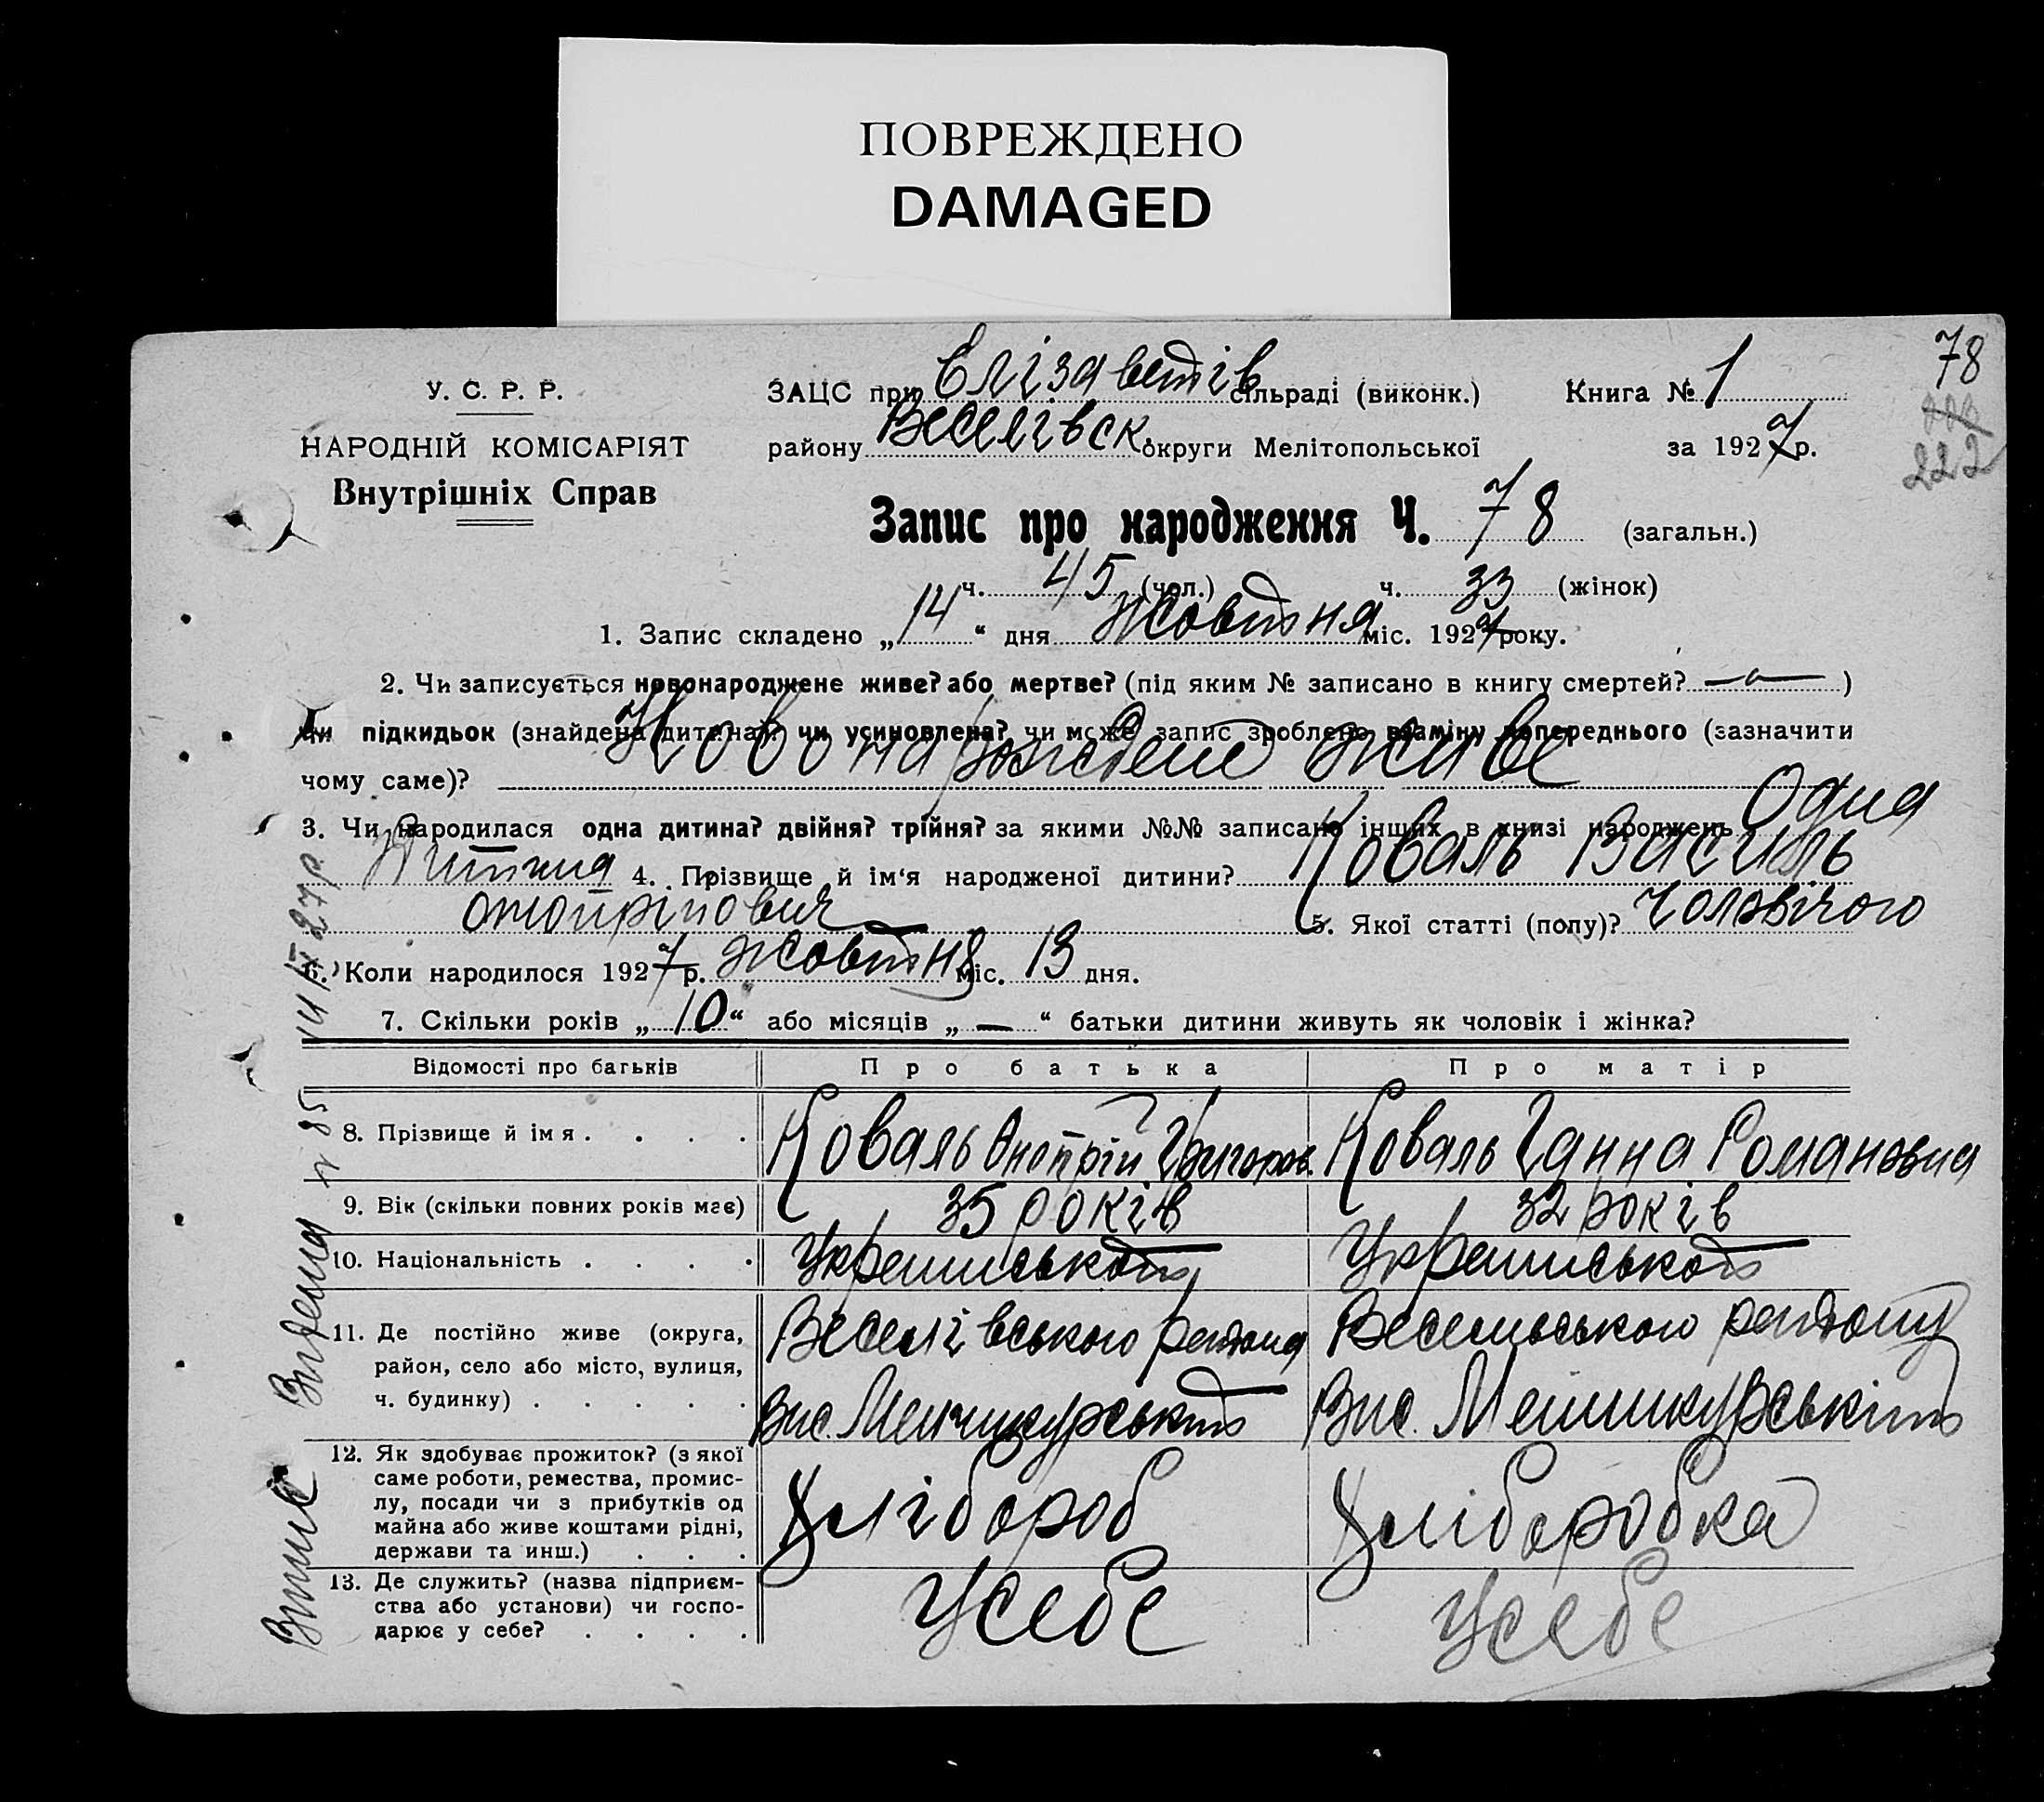 ПОВРЕЖДЕНО
DAMAGED
78
222
У. С. Р. Р.
НАРОДНІЙ КОМІСАРІЯТ
Внутрішніх Справ
ЗАЦС при Єлізаветів сільраді (виконк.) Книга № 1
району Веселівськ. округи Мелітопольської за 1927 р.
Запис про народження Ч. 78 (загальн.)
ч. 45 (чол.) ч. 33 (жінок)
1. Запис складено „14“ дня жовтня міс. 1927 року.
2. Чи записується новонароджене живе? або мертве? (під яким № записано в книгу смертей? — )
Чи підкидьок (знайдена дитина)? чи усиновлена? чи може запис зроблено взаміну попереднього (зазначити
чому саме)? Новонарождене живе
3. Чи народилася одна дитина? двійня? трійня? за якими №№ записано інших в книзі народжень Одна
Дитина 4. Прізвище й ім‘я народженої дитини? Коваль Василь
5. Якої статті (полу)? Чоловічого
6. Коли народилося 1927 р. жовтня міс. 13 дня.
7. Скільки років „10“ або місяців „—“ батьки дитини живуть як чоловік і жінка?
Відомості про батьків Про батька Про матір
8. Прізвище й імя . . . . Коваль Григоров. Коваль Ганна Романовна
9. Вік (скільки повних років має) 35 років 32 років
10. Національність . . . .
11. Де постійно живе (округа, Веселівського района
район, село або місто, вулиця,
ч. будинку) . . . . .
12. Як здобуває прожиток? (з якої
саме роботи, ремества, промис-
лу, посади чи з прибутків од Хлібороб Хліборобка
майна або живе коштами рідні,
держави та инш.) . . .
13. Де служить? (назва підприєм-
ства або установи) чи госпо- Усебе Усебе
дарює у себе? . . . .